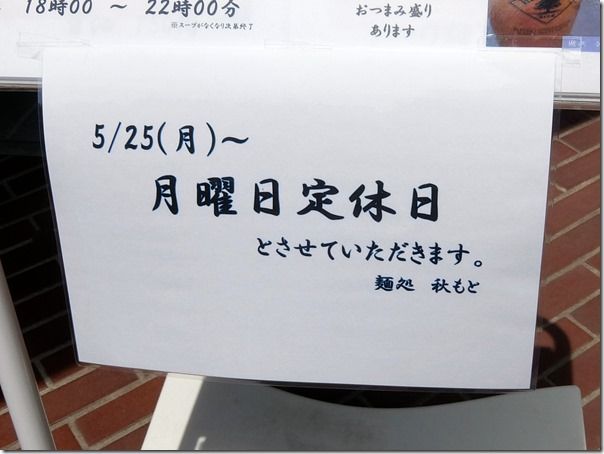 18時00 ～ 22時00分
※スープがなくなり次第終了
おつまみ盛り
あります
5/25(月)～
月曜日定休日
とさせていただきます。
麺処 秋もと